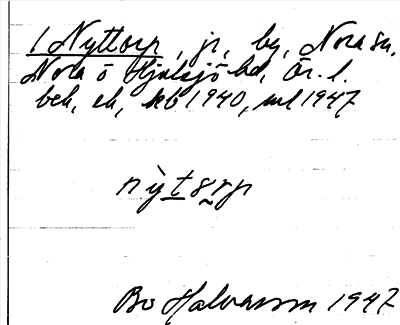 1 Nyttorp, jr, by, Nora sn,
Nora o Hjulsjö bd, Ör. l.
beb, ek, kb 1940, ml 1947
nỳtsrp
Bo Halvarson 1947